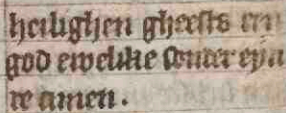 heilighen gheests en
god ewelike sonder eyn
re amen.